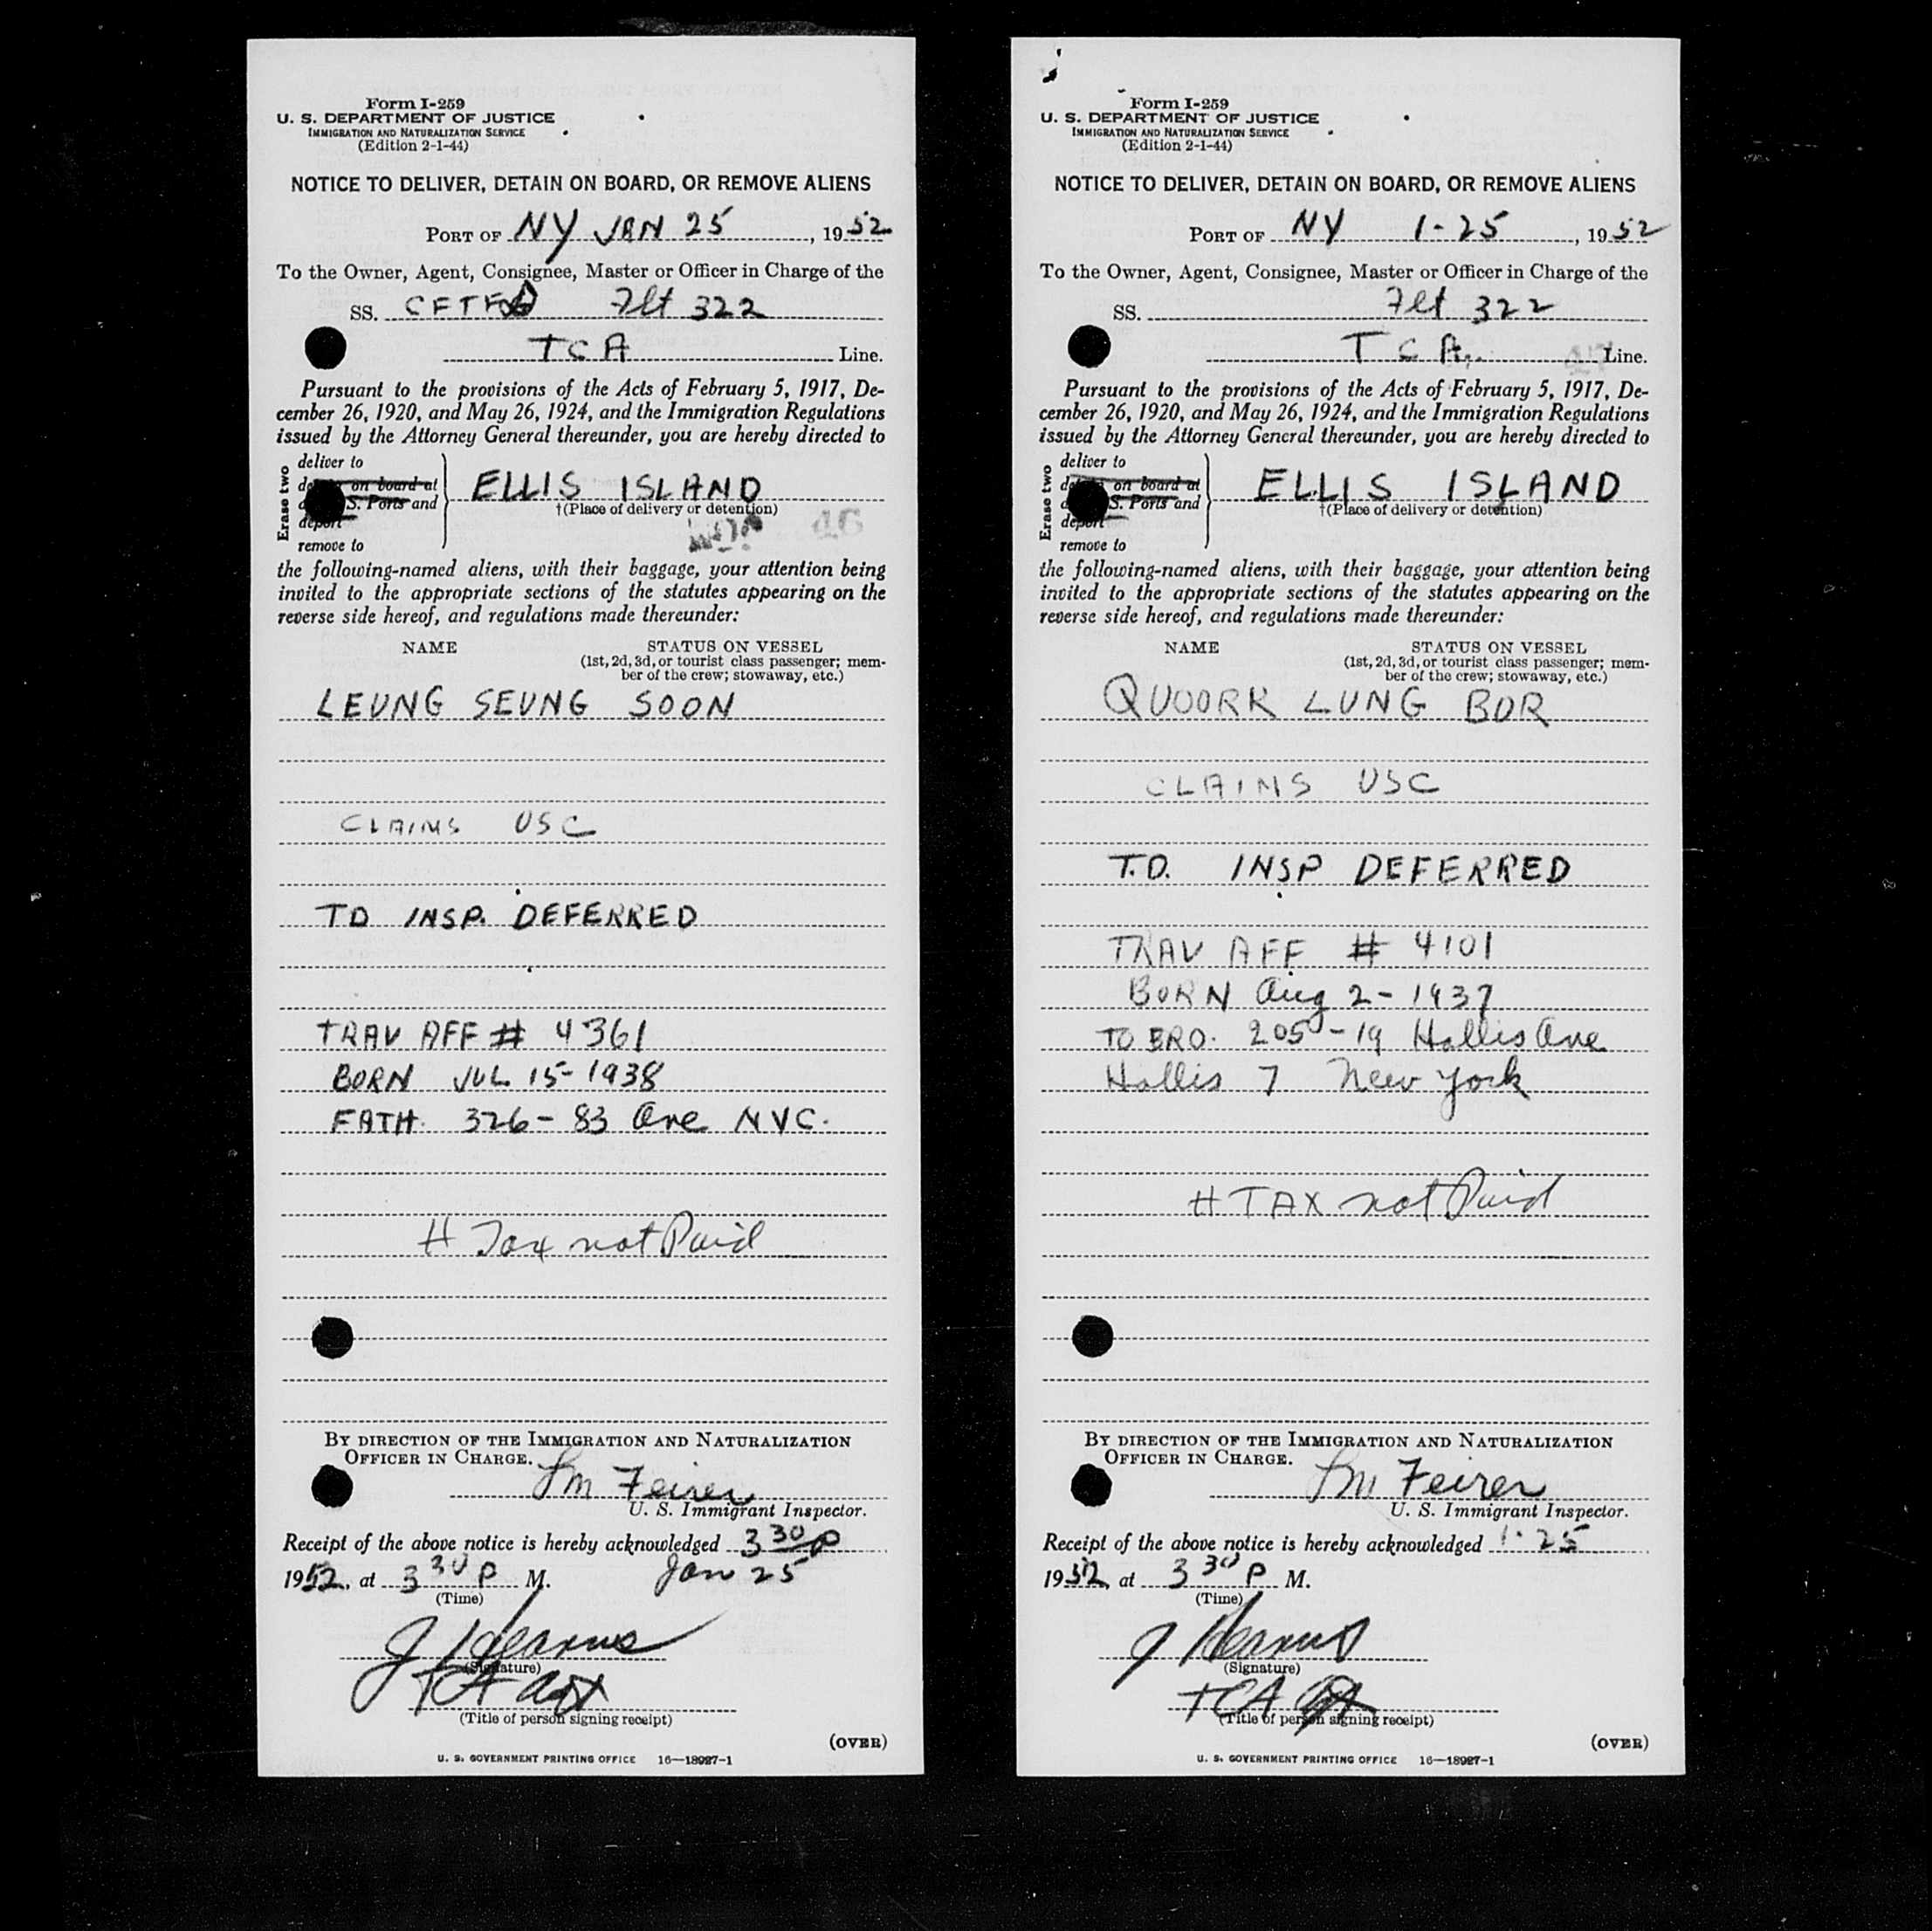 Form I-259
U. S. DEPARTMENT OF JUSTICE
IMMIGRATION AND NATURALIZATION SERVICE
(Edition 2-1-44)
NOTICE TO DELIVER, DETAIN ON BOARD, OR REMOVE ALIENS
PORT OF NY JAN 25, 1952
To the Owner, Agent, Consignee, Master or Officer in Charge of the
SS. Flt 322
TCA Line.
Pursuant to the provisions of the Acts of February 5, 1917, De-
cember 26, 1920, and May 26, 1924, and the Immigration Regulations
issued by the Attorney General thereunder, you are hereby directed to
Erase two
deliver to
on board at
S. Ports and
deport
remove to
ELLIS ISLAND
†(Place of delivery or detention)
the following-named aliens, with their baggage, your attention being
invited to the appropriate sections of the statutes appearing on the
reverse side hereof, and regulations made thereunder:
NAME STATUS ON VESSEL
(1st, 2d, 3d, or tourist class passenger; mem-
ber of the crew; stowaway, etc.)
LEUNG SEUNG SOON
CLAIMS USC
TD INSP. DEFERRED
TRAV AFF # 4361
BORN JUL 15-1938
FATH. 326-83 Ave NYC.
H Tax not Paid
BY DIRECTION OF THE IMMIGRATION AND NATURALIZATION
OFFICER IN CHARGE.
Feirer
U. S. Immigrant Inspector.
Receipt of the above notice is hereby acknowledged 3 30 P
1952, at 3 30 P M. Jan 25
(Time)
J
(Signature)
TCA
(Title of person signing receipt)
(OVER)
U. S. GOVERNMENT PRINTING OFFICE 16—18927-1
Form I-259
U. S. DEPARTMENT OF JUSTICE
IMMIGRATION AND NATURALIZATION SERVICE
(Edition 2-1-44)
NOTICE TO DELIVER, DETAIN ON BOARD, OR REMOVE ALIENS
PORT OF NY 1-25, 1952
To the Owner, Agent, Consignee, Master or Officer in Charge of the
SS. Flt 322
TCA Line.
Pursuant to the provisions of the Acts of February 5, 1917, De-
cember 26, 1920, and May 26, 1924, and the Immigration Regulations
issued by the Attorney General thereunder, you are hereby directed to
Erase two
deliver to
on board at
S. Ports and
deport
remove to
ELLIS ISLAND
†(Place of delivery or detention)
the following-named aliens, with their baggage, your attention being
invited to the appropriate sections of the statutes appearing on the
reverse side hereof, and regulations made thereunder:
NAME STATUS ON VESSEL
(1st, 2d, 3d, or tourist class passenger; mem-
ber of the crew; stowaway, etc.)
QUOORK LUNG BOR
CLAIMS USC
T.D. INSP DEFERRED
TRAV AFF # 4101
BORN Aug 2-1937
TO BRO. 205-19 Hollis Ave
Hollis 7 New York
H TAX not Paid
BY DIRECTION OF THE IMMIGRATION AND NATURALIZATION
OFFICER IN CHARGE.
Feirer
U. S. Immigrant Inspector.
Receipt of the above notice is hereby acknowledged 1-25
1952, at 3 30 P M.
(Time)
J
(Signature)
TCA
(Title of person signing receipt)
(OVER)
U. S. GOVERNMENT PRINTING OFFICE 16—18927-1